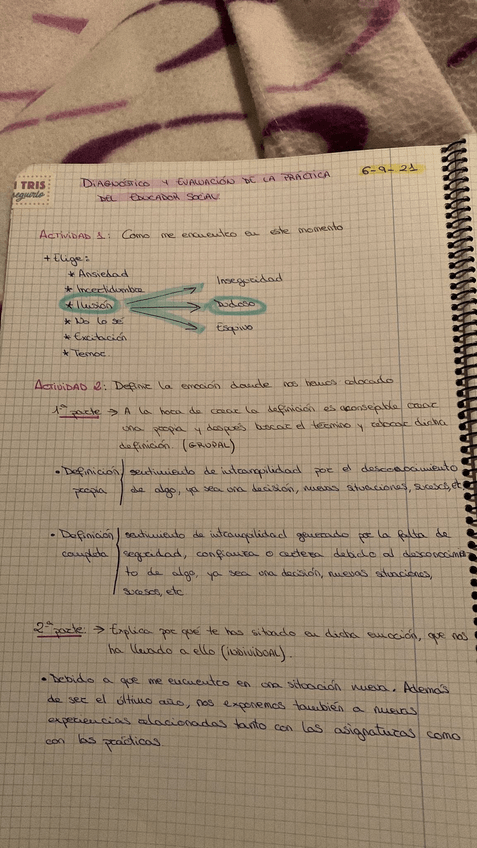 TRIS
seguirlo
6-9-21
DIAGNÓSTICO Y EVALUACIÓN DE LA PRÁCTICA
DEL EDUCADOR SOCIAL
ACTIVIDAD 1: Como me encuentro en este momento
+ Elige:
* Ansiedad
* Incertidumbre
* Ilusión
* No lo sé
* Excitación
* Temor
Inseguridad
Dudoso
Esquivo
ACTIVIDAD 2: Define la emoción donde nos hemos colocado
1ª parte → A la hora de crear la definición es aconsejable crear
una propia y después buscar el término y colocar dicha
definición. (GRUPAL)
• Definición propia
sentimiento de intranquilidad por el desconocimiento
de algo, ya sea una decisión, nuevas situaciones, sucesos, etc
• Definición completa
sentimiento de intranquilidad generado por la falta de
seguridad, confianza o certeza debido al desconocimien-
to de algo, ya sea una decisión, nuevas situaciones,
sucesos, etc
2ª parte: → Explica por qué te has situado en dicha emoción, que nos
ha llevado a ello (INDIVIDUAL).
• Debido a que me encuentro en una situación nueva. Además
de ser el último año, nos exponemos también a nuevas
experiencias relacionadas tanto con las asignaturas como
con las prácticas